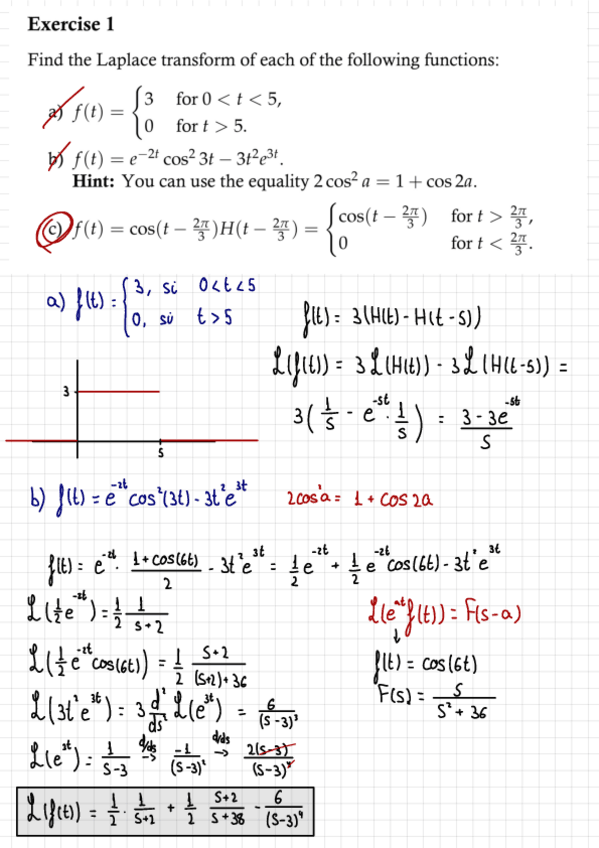 Exercise 1
Find the Laplace transform of each of the following functions:
a) f(t) = { 3 for 0 < t < 5,
0 for t > 5.
b) f(t) = e^{−2t} cos² 3t − 3t²e^{3t}.
Hint: You can use the equality 2 cos² a = 1 + cos 2a.
c) f(t) = cos(t − 2π/3)H(t − 2π/3) = { cos(t − 2π/3) for t > 2π/3,
0 for t < 2π/3.
a) f(t) = { 3, si 0<t<5
0, si t>5
f(t) = 3(H(t) - H(t-5))
L(f(t)) = 3L(H(t)) - 3L(H(t-5)) =
3(1/s - e^{-5t} · 1/s) = (3 - 3e^{-5t})/s
3
5
b) f(t) = e^{-2t} cos²(3t) - 3t²e^{3t} 2cos²a = 1 + cos 2a
f(t) = e^{-2t} · (1+cos(6t))/2 - 3t²e^{3t} = 1/2 e^{-2t} + 1/2 e^{-2t} cos(6t) - 3t²e^{3t}
L(1/2 e^{-2t}) = 1/2 1/(s+2)
L(e^{at}f(t)) = F(s-a)
L(1/2 e^{-2t} cos(6t)) = 1/2 (s+2)/((s+2)+36)
f(t) = cos(6t)
F(s) = s/(s²+36)
L(3t²e^{3t}) = 3 d²/ds² L(e^{3t}) = 6/(s-3)³
L(e^{3t}) = 1/(s-3) d/ds → -1/(s-3)² d/ds → 2(s-3)/(s-3)⁴
L(f(t)) = 1/2 · 1/(s+2) + 1/2 (s+2)/(s+38) - 6/(s-3)⁴